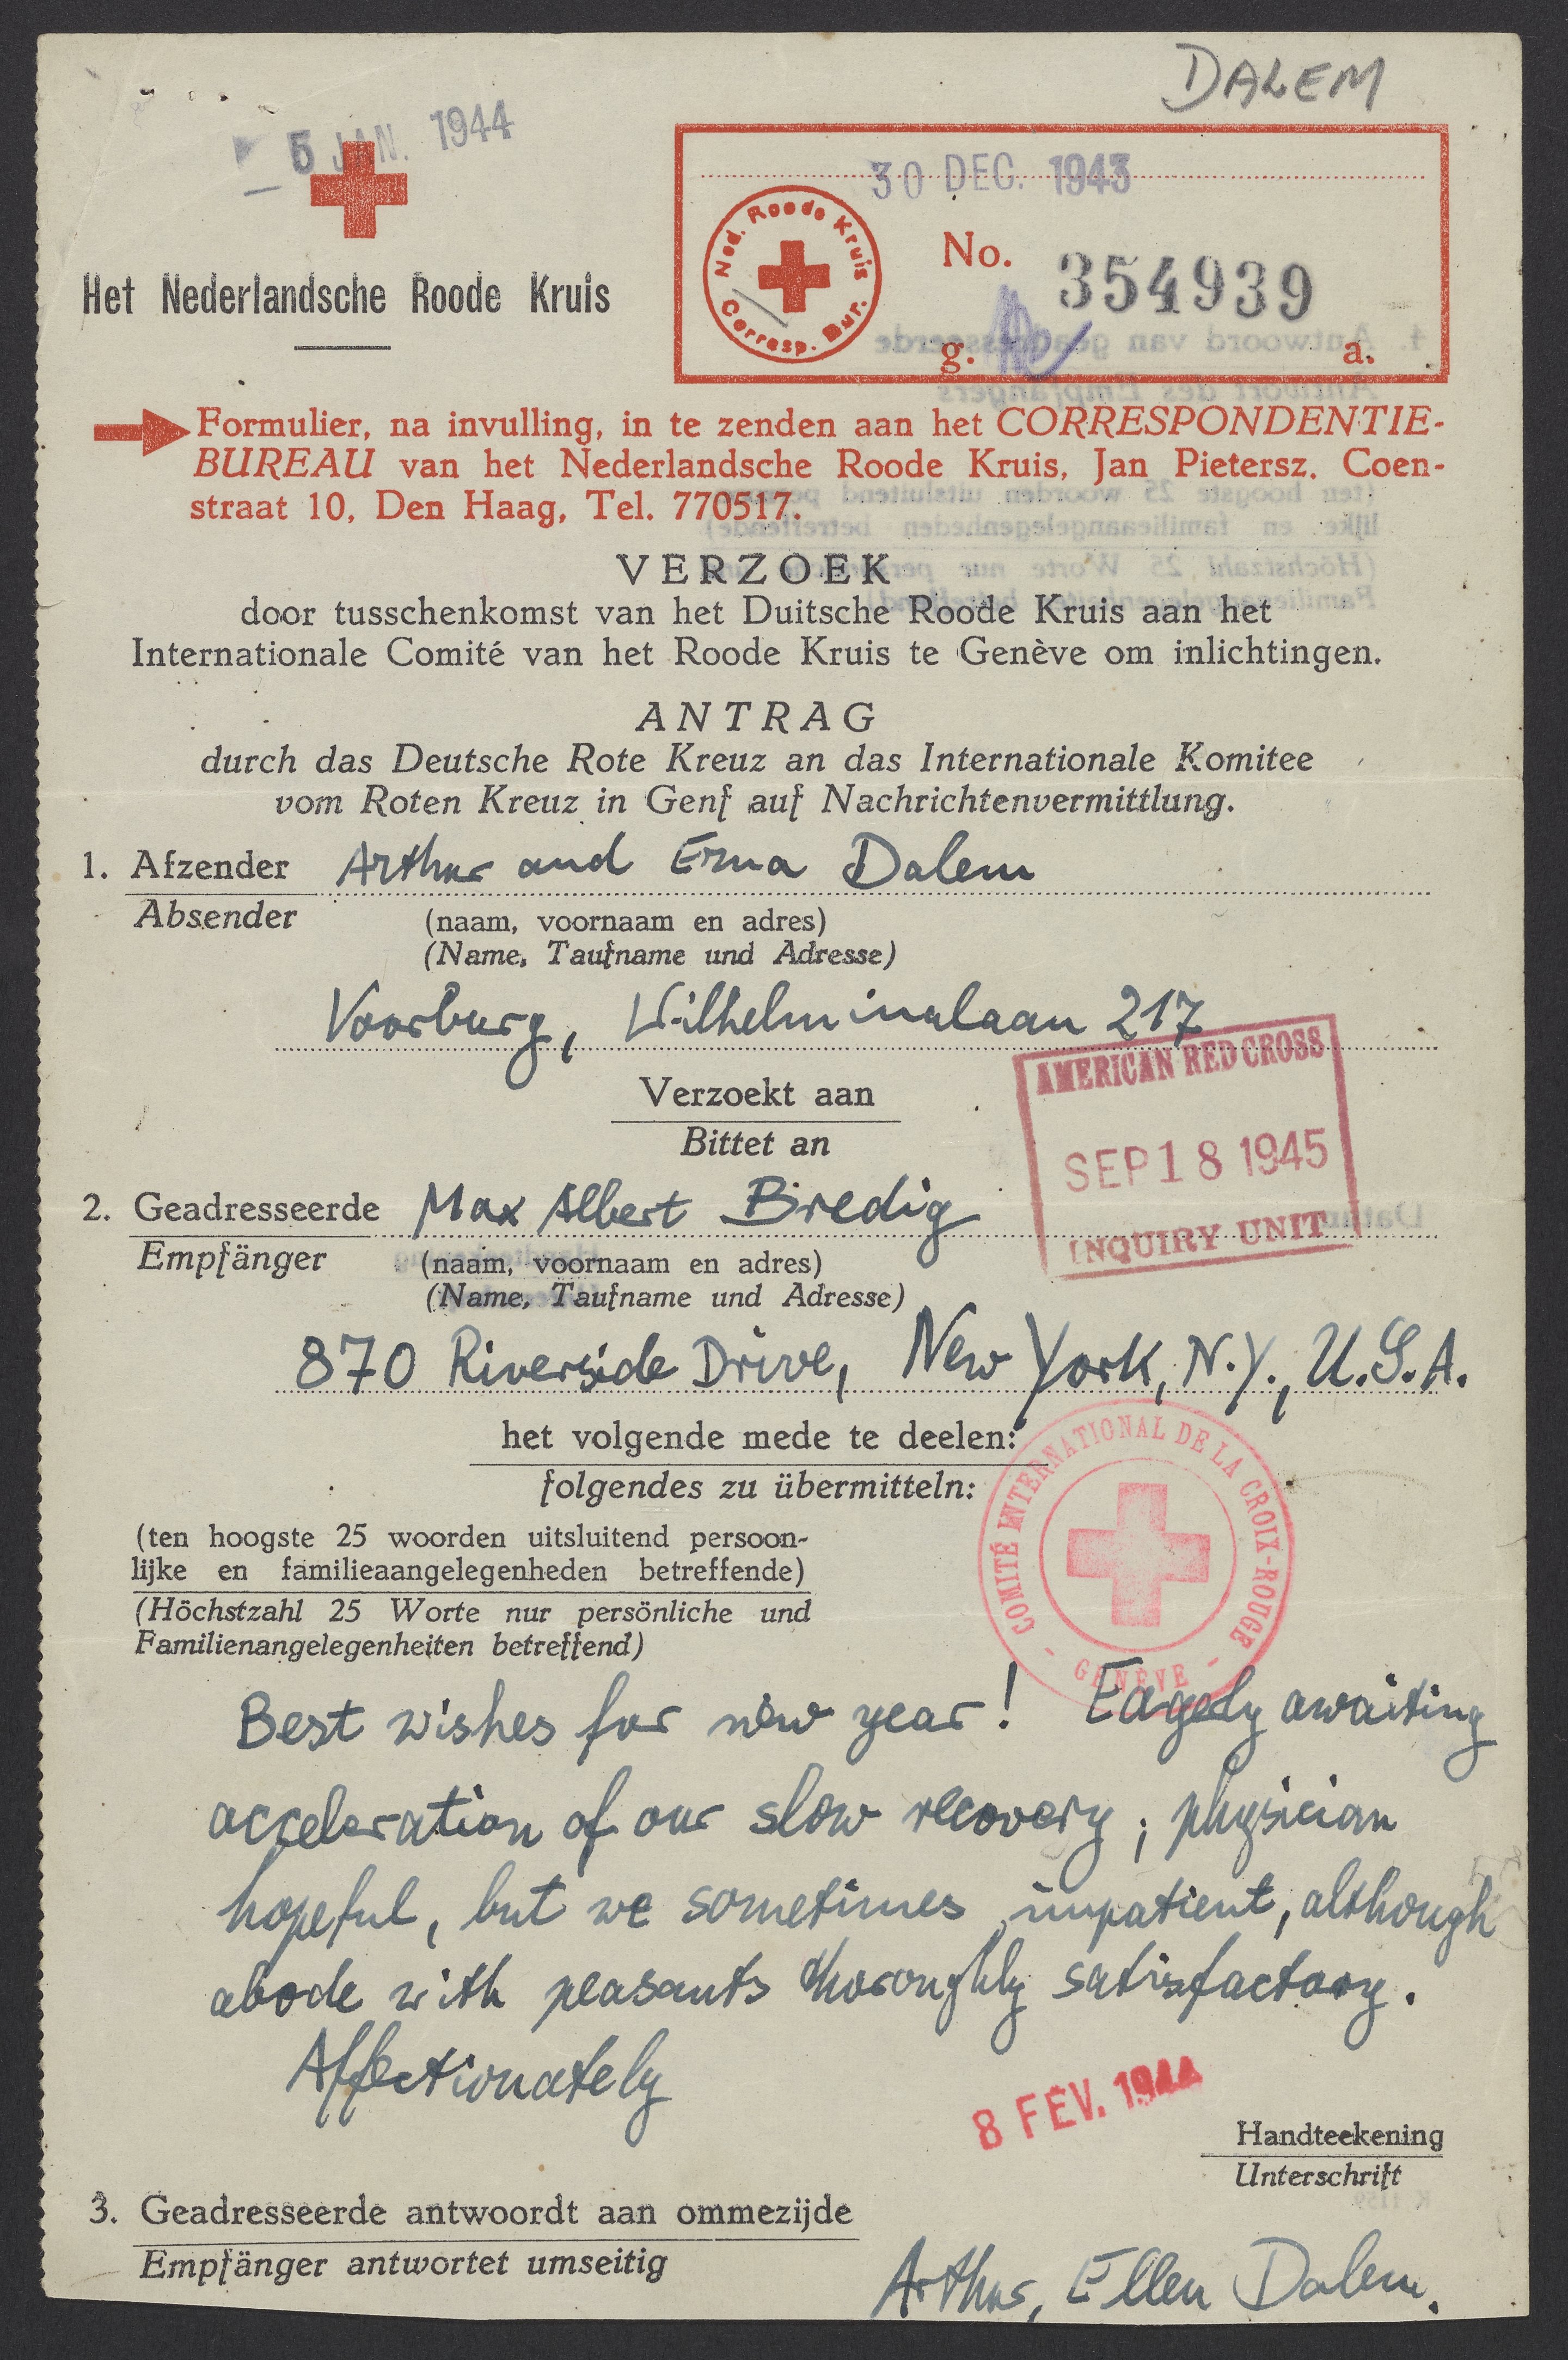 DALEM
5 JAN. 1944
30 DEC. 1943
Ned. Roode Kruis
Corresp. Bur.
No. 354939
g. a.
Het Nederlandsche Roode Kruis
Formulier, na invulling, in te zenden aan het CORRESPONDENTIE-
BUREAU van het Nederlandsche Roode Kruis, Jan Pietersz. Coen-
straat 10, Den Haag, Tel. 770517.
VERZOEK
door tusschenkomst van het Duitsche Roode Kruis aan het
Internationale Comité van het Roode Kruis te Genève om inlichtingen.
ANTRAG
durch das Deutsche Rote Kreuz an das Internationale Komitee
vom Roten Kreuz in Genf auf Nachrichtenvermittlung.
1. Afzender Arthur and Erna Dalem
Absender
(naam, voornaam en adres)
(Name, Taufname und Adresse)
Voorburg, Wilhelminalaan 217
AMERICAN RED CROSS
SEP 18 1945
INQUIRY UNIT
Verzoekt aan
Bittet an
2. Geadresseerde Max Albert Bredig
Empfänger
(naam, voornaam en adres)
(Name, Taufname und Adresse)
870 Riverside Drive, New York, N.Y., U.S.A.
het volgende mede te deelen:
folgendes zu übermitteln:
COMITÉ INTERNATIONAL DE LA CROIX-ROUGE
- GENÈVE -
(ten hoogste 25 woorden uitsluitend persoon-
lijke en familieaangelegenheden betreffende)
(Höchstzahl 25 Worte nur persönliche und
Familienangelegenheiten betreffend)
Best wishes for new year! Eagerly awaiting
acceleration of our slow recovery; physician
hopeful, but we sometimes impatient, although
abode with peasants thoroughly satisfactory.
Affectionately
8 FÉV. 1944
Handteekening
Unterschrift
3. Geadresseerde antwoordt aan ommezijde
Empfänger antwortet umseitig
Arthur, Ellen Dalem.